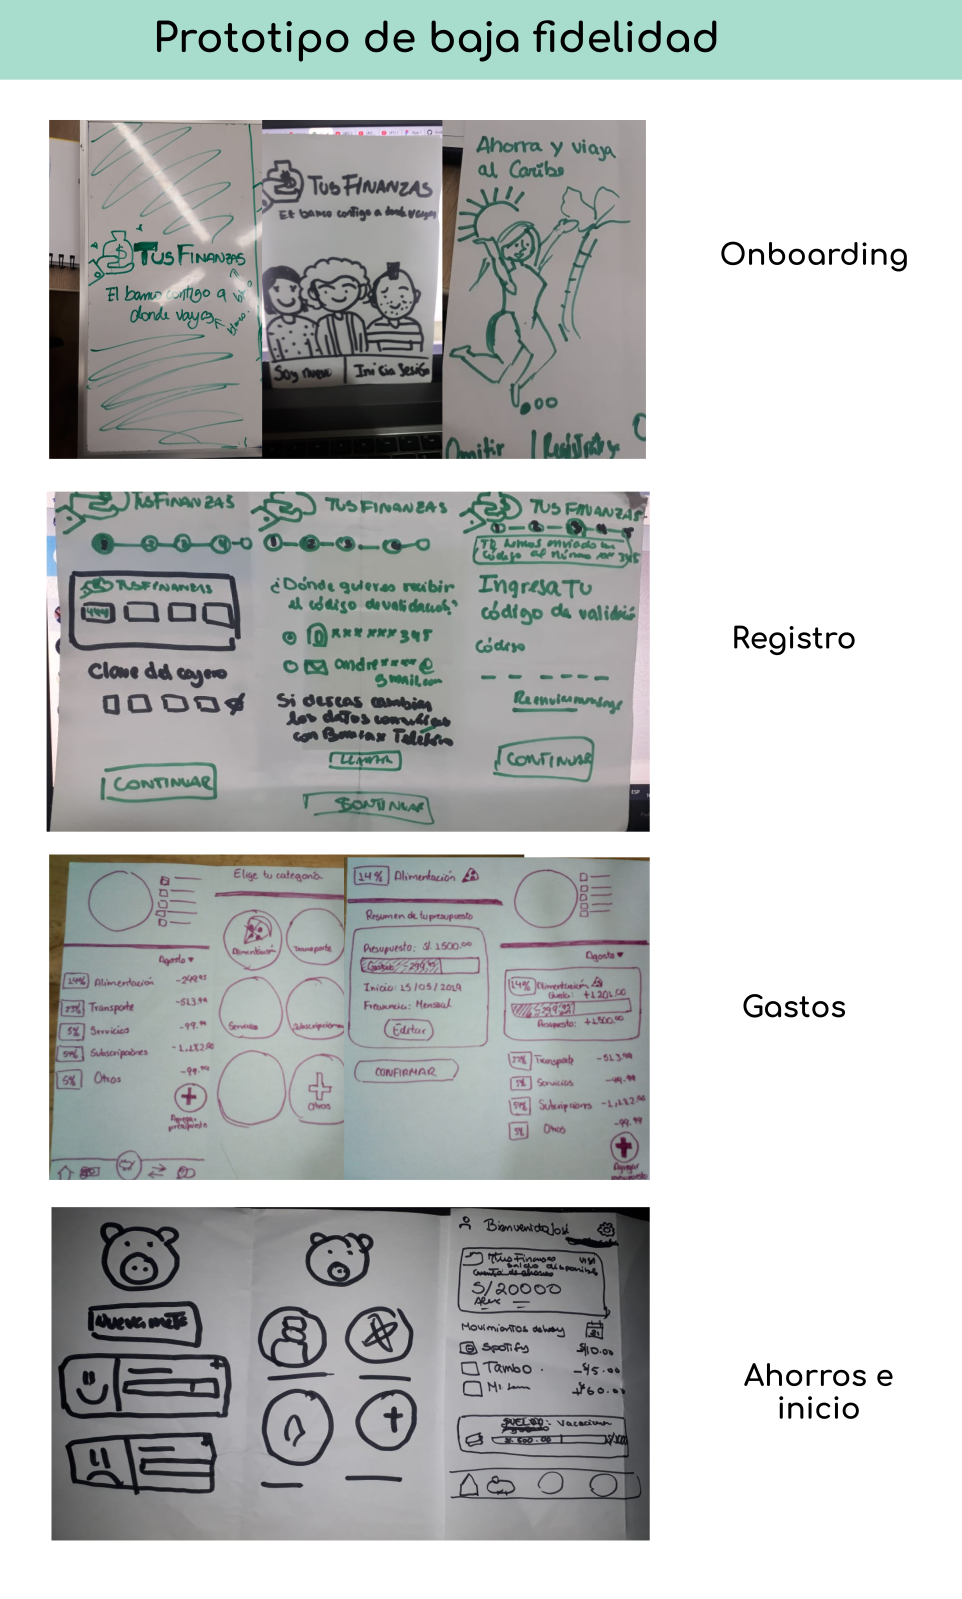 Prototipo de baja fidelidad
TUSFINANZAS
El banco contigo a
donde vayas
TUSFINANZAS
El banco contigo a donde vayas
Soy nuevo
Inicia Sesión
Ahorra y viaja
al Caribe
Omitir
Regístrate
Onboarding
TUSFINANZAS
1 2 3 4
TUSFINANZAS
Clave del cajero
CONTINUAR
TUSFINANZAS
1 2 3 4
¿Dónde quieres recibir
el código de validación?
******345
andre****@
gmail.com
Si deseas cambiar
los datos
con Banca x Teléfono
LLAMAR
CONTINUAR
TUS FINANZAS
1 2 3 4
Te hemos enviado un
código al número *** 345
Ingresa Tu
código de validació
Código
CONTINUAR
Registro
Agosto
14% Alimentación -299.95
Transporte -513.90
5% Servicios -99.99
Subscripciones -1,182.00
5% Otros -99.99
Agregar
presupuesto
Elige tu categoría
Alimentación
Transporte
Servicios
Subscripciones
Otros
14% Alimentación
Resumen de tu presupuesto
Presupuesto: S/. 1500.00
Gastado 299.95
Inicio: 15/05/2019
Frecuencia: Mensual
Editar
CONFIRMAR
Agosto
14% Alimentación
Queda: +1201.00
299.95
Presupuesto: +1500.00
Transporte -513.90
5% Servicios -99.99
Subscripciones -1,182.00
5% Otros -99.99
Agregar
Gastos
Nueva meta
Bienvenido José
Tus Finanzas VISA
Saldo disponible
cuenta de ahorros
S/20000
Movimientos de hoy
Spotify S/10.00
Tambo -45.00
+60.00
SUELDO: Vacaciones
S/. 500.00
Ahorros e
inicio